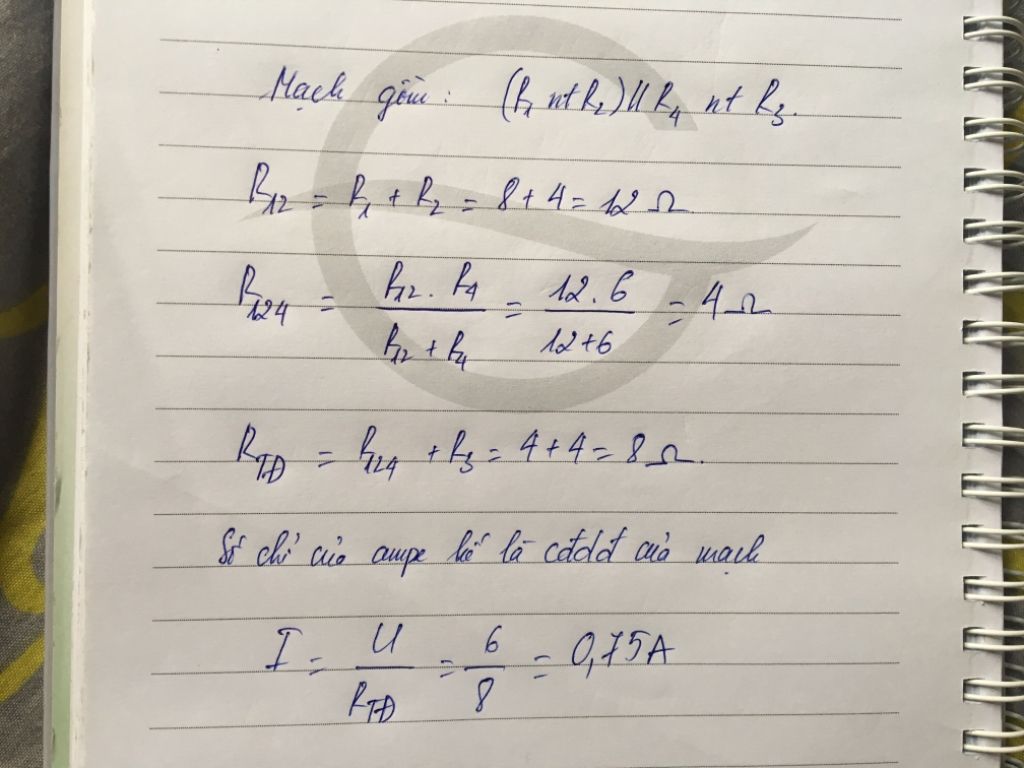 Mạch gồm: (R1 nt R2) // R4 nt R3.
R12 = R1 + R2 = 8 + 4 = 12 Ω
R124 = R12 . R4 / R12 + R4 = 12 . 6 / 12 + 6 = 4 Ω
RTĐ = R124 + R3 = 4 + 4 = 8 Ω.
Số chỉ của ampe kế là cđdđ của mạch
I = U / RTĐ = 6 / 8 = 0,75A